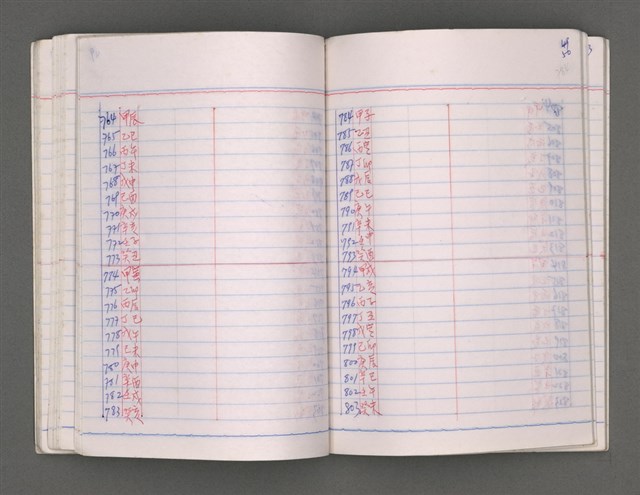 764 甲辰
765 乙巳
766 丙午
767 丁未
768 戊申
769 己酉
770 庚戌
771 辛亥
772 壬子
773 癸丑
774 甲寅
775 乙卯
776 丙辰
777 丁巳
778 戊午
779 己未
780 庚申
781 辛酉
782 壬戌
783 癸亥
784 甲子
785 乙丑
786 丙寅
787 丁卯
788 戊辰
789 己巳
790 庚午
791 辛未
792 壬申
793 癸酉
794 甲戌
795 乙亥
796 丙子
797 丁丑
798 戊寅
799 己卯
800 庚辰
801 辛巳
802 壬午
803 癸未